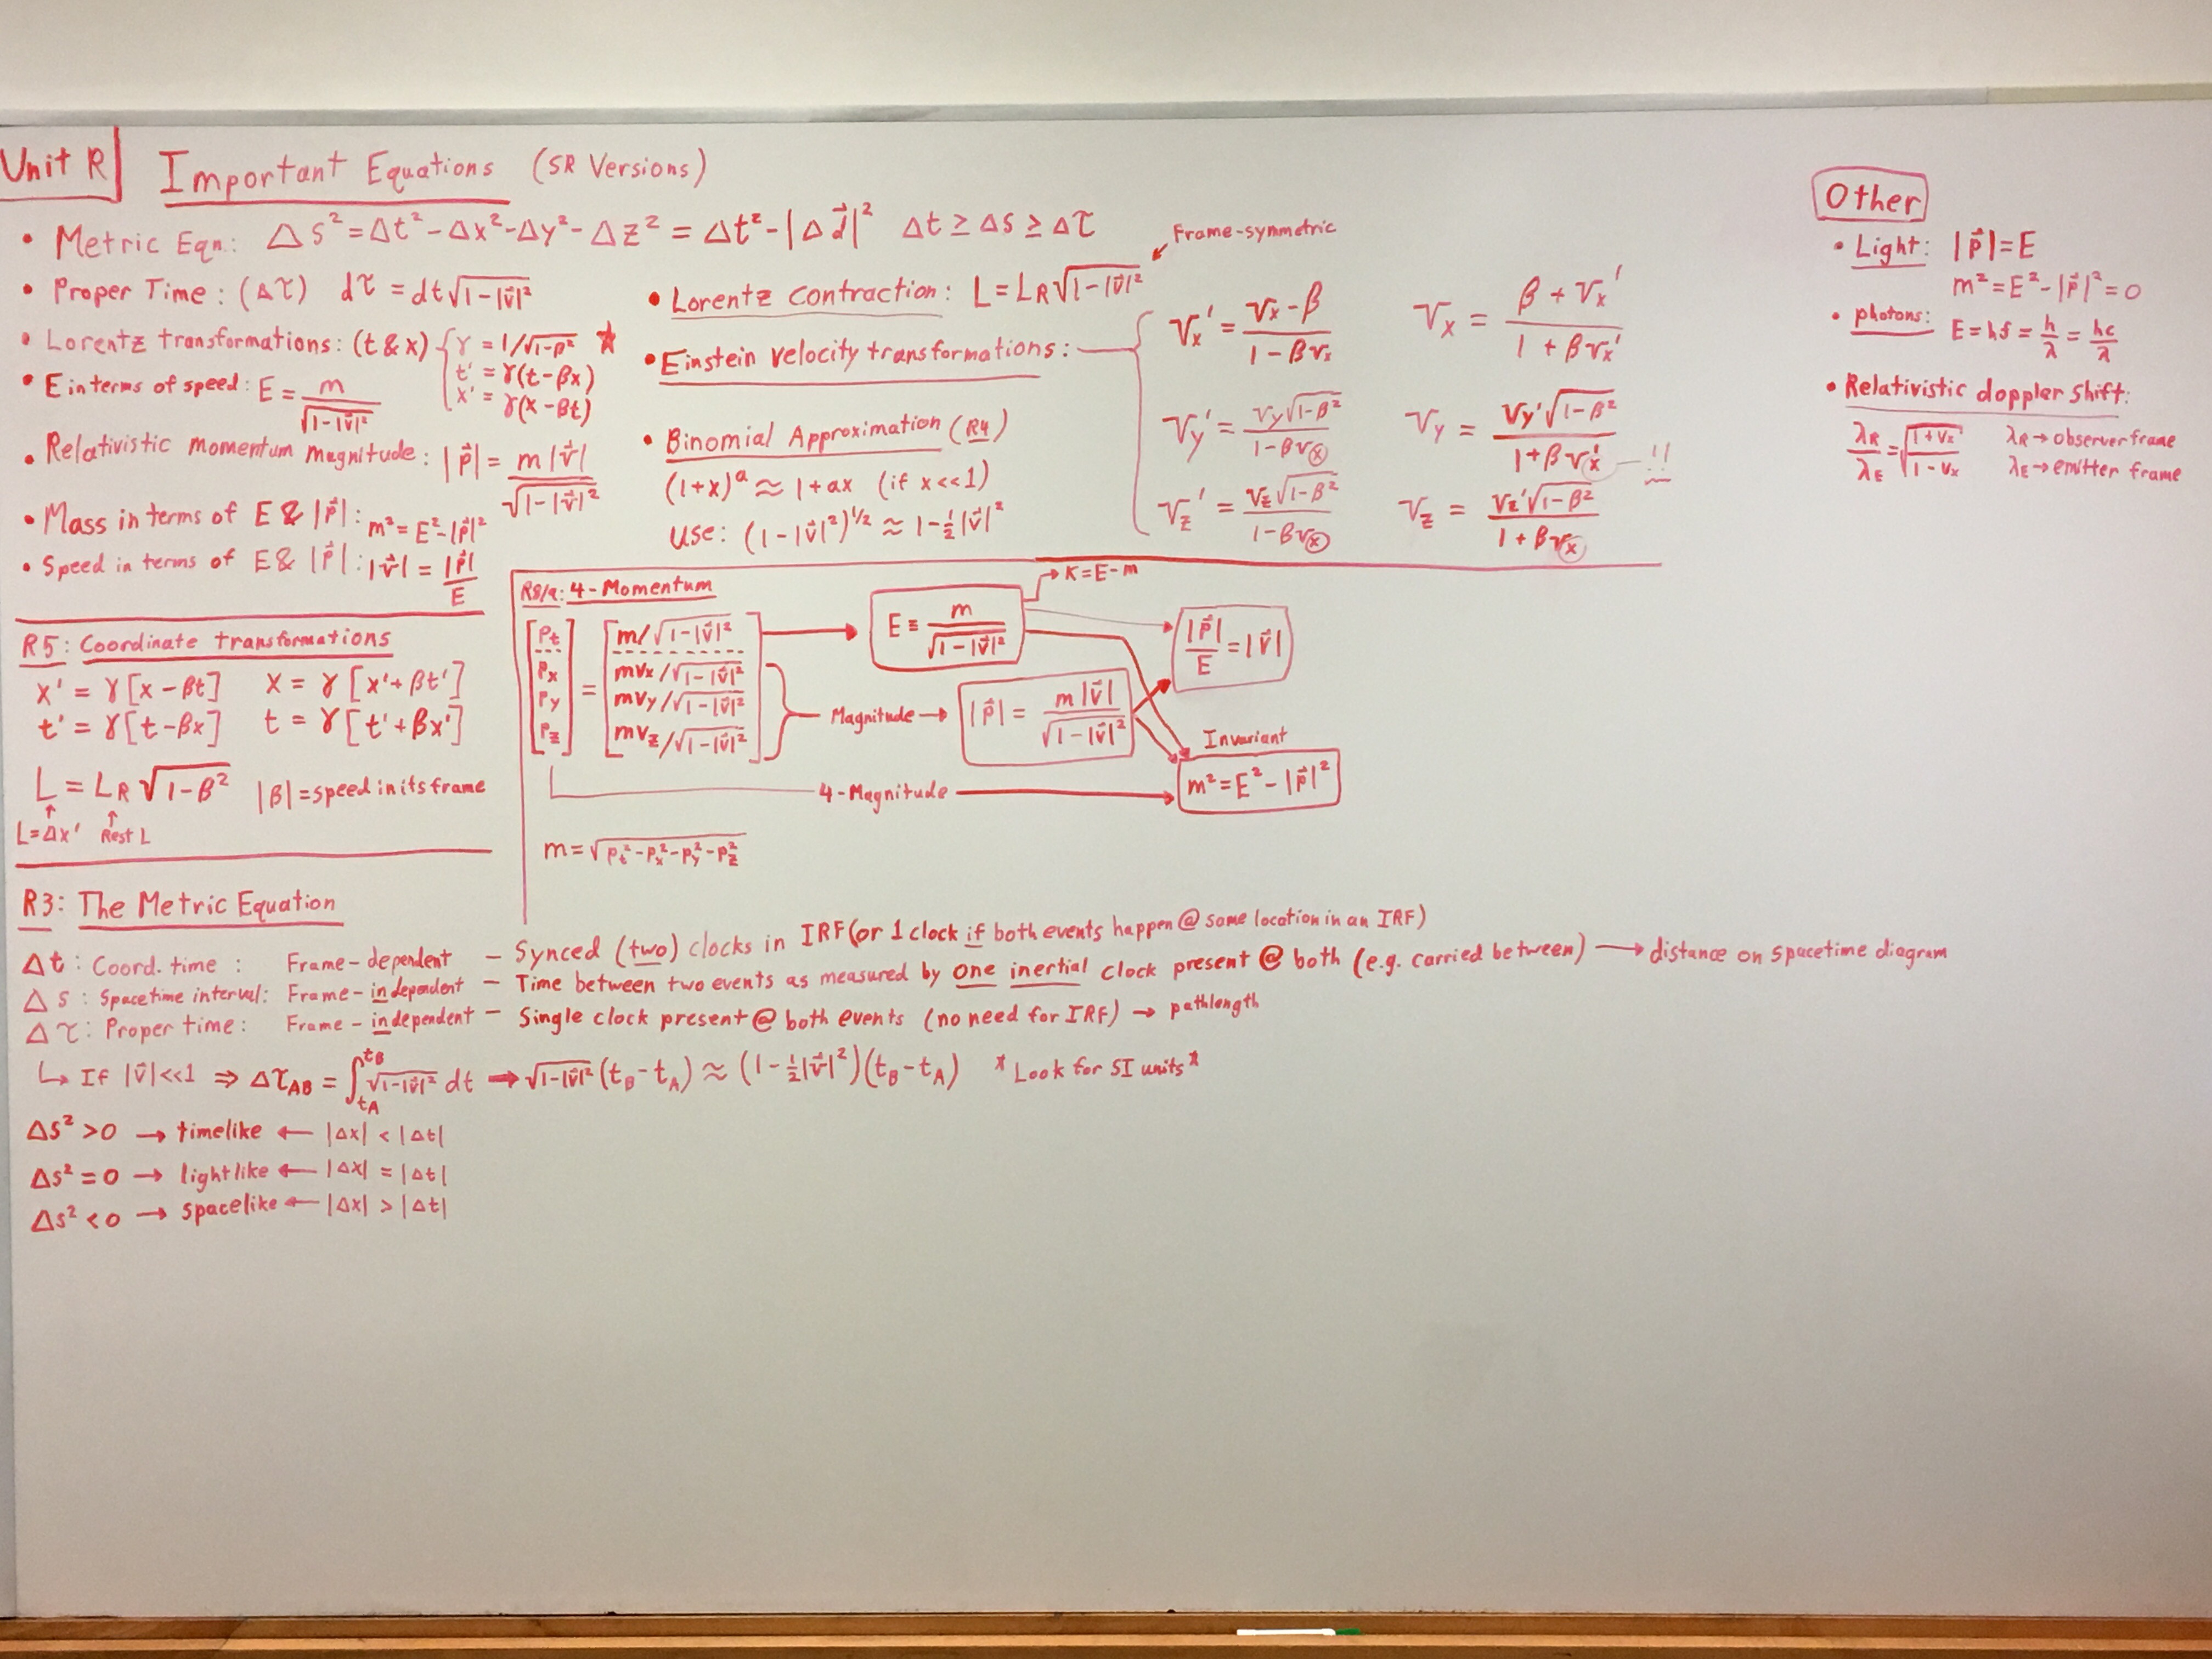 Unit R Important Equations (SR Versions)
• Metric Eqn.: Δs² = Δt² - Δx² - Δy² - Δz² = Δt² - |Δd⃗|² Δt ≥ Δs ≥ Δτ
• Proper Time: (Δτ) dτ = dt√(1-|v⃗|²)
• Lorentz transformations: (t & x) { γ = 1/√(1-β²) ★
t' = γ(t-βx)
x' = γ(x-βt)
• E in terms of speed: E = m/√(1-|v⃗|²)
• Relativistic momentum magnitude: |p⃗| = m|v⃗|/√(1-|v⃗|²)
• Mass in terms of E & |p⃗|: m² = E²-|p⃗|²
• Speed in terms of E & |p⃗|: |v⃗| = |p⃗|/E
Frame-symmetric
• Lorentz Contraction: L = L_R√(1-|v⃗|²)
• Einstein velocity transformations:
v_x' = (v_x-β)/(1-βv_x) v_x = (β+v_x')/(1+βv_x')
v_y' = v_y√(1-β²)/(1-βv_ⓧ) v_y = v_y'√(1-β²)/(1+βv_ⓧ') — !!
v_z' = v_z√(1-β²)/(1-βv_ⓧ) v_z = v_z'√(1-β²)/(1+βv_ⓧ)
• Binomial Approximation (R4)
(1+x)^a ≈ 1+ax (if x<<1)
Use: (1-|v⃗|²)^(1/2) ≈ 1-½|v⃗|²
Other
• Light: |p⃗| = E
m² = E²-|p⃗|² = 0
• photons: E = hf = h/λ = hc/λ
• Relativistic doppler shift:
λ_R/λ_E = √((1+v_x)/(1-v_x)) λ_R → observer frame
λ_E → emitter frame
R5: Coordinate transformations
x' = γ[x-βt] x = γ[x'+βt']
t' = γ[t-βx] t = γ[t'+βx']
L = L_R√(1-β²) |β| = speed in its frame
↑ ↑
L=Δx' Rest L
R8/9: 4-Momentum
[p_t] = [m/√(1-|v⃗|²)] → E ≡ m/√(1-|v⃗|²) → K = E-m
[p_x] [mv_x/√(1-|v⃗|²)]
[p_y] [mv_y/√(1-|v⃗|²)]
[p_z] [mv_z/√(1-|v⃗|²)]
} Magnitude → |p⃗| = m|v⃗|/√(1-|v⃗|²)
|p⃗|/E = |v⃗|
Invariant
4-Magnitude → m² = E²-|p⃗|²
m = √(p_t²-p_x²-p_y²-p_z²)
R3: The Metric Equation
Δt: Coord. time: Frame-dependent — Synced (two) clocks in IRF (or 1 clock if both events happen @ same location in an IRF)
Δs: Spacetime interval: Frame-independent — Time between two events as measured by one inertial clock present @ both (e.g. carried between) → distance on spacetime diagram
Δτ: Proper time: Frame-independent — Single clock present @ both events (no need for IRF) → pathlength
↳ If |v⃗|<<1 ⇒ Δτ_AB = ∫_{t_A}^{t_B} √(1-|v⃗|²) dt → √(1-|v⃗|²)(t_B-t_A) ≈ (1-½|v⃗|²)(t_B-t_A) *Look for SI units*
Δs² > 0 → timelike ← |Δx| < |Δt|
Δs² = 0 → lightlike ← |Δx| = |Δt|
Δs² < 0 → spacelike ← |Δx| > |Δt|